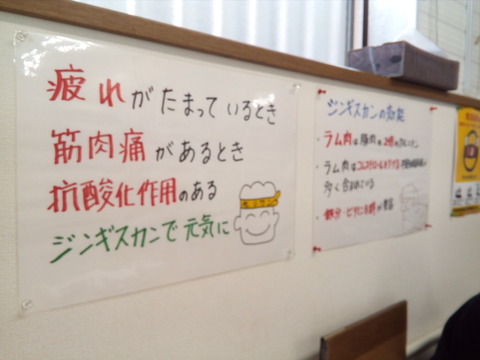 疲れがたまっているとき
筋肉痛があるとき
抗酸化作用のある
ジンギスカンで元気に
ジンギスカンの効能
・ラム肉は豚肉の
・ラム肉はコレステロールを下げる
多く含まれている
・鉄分・ビタミンB群が豊富